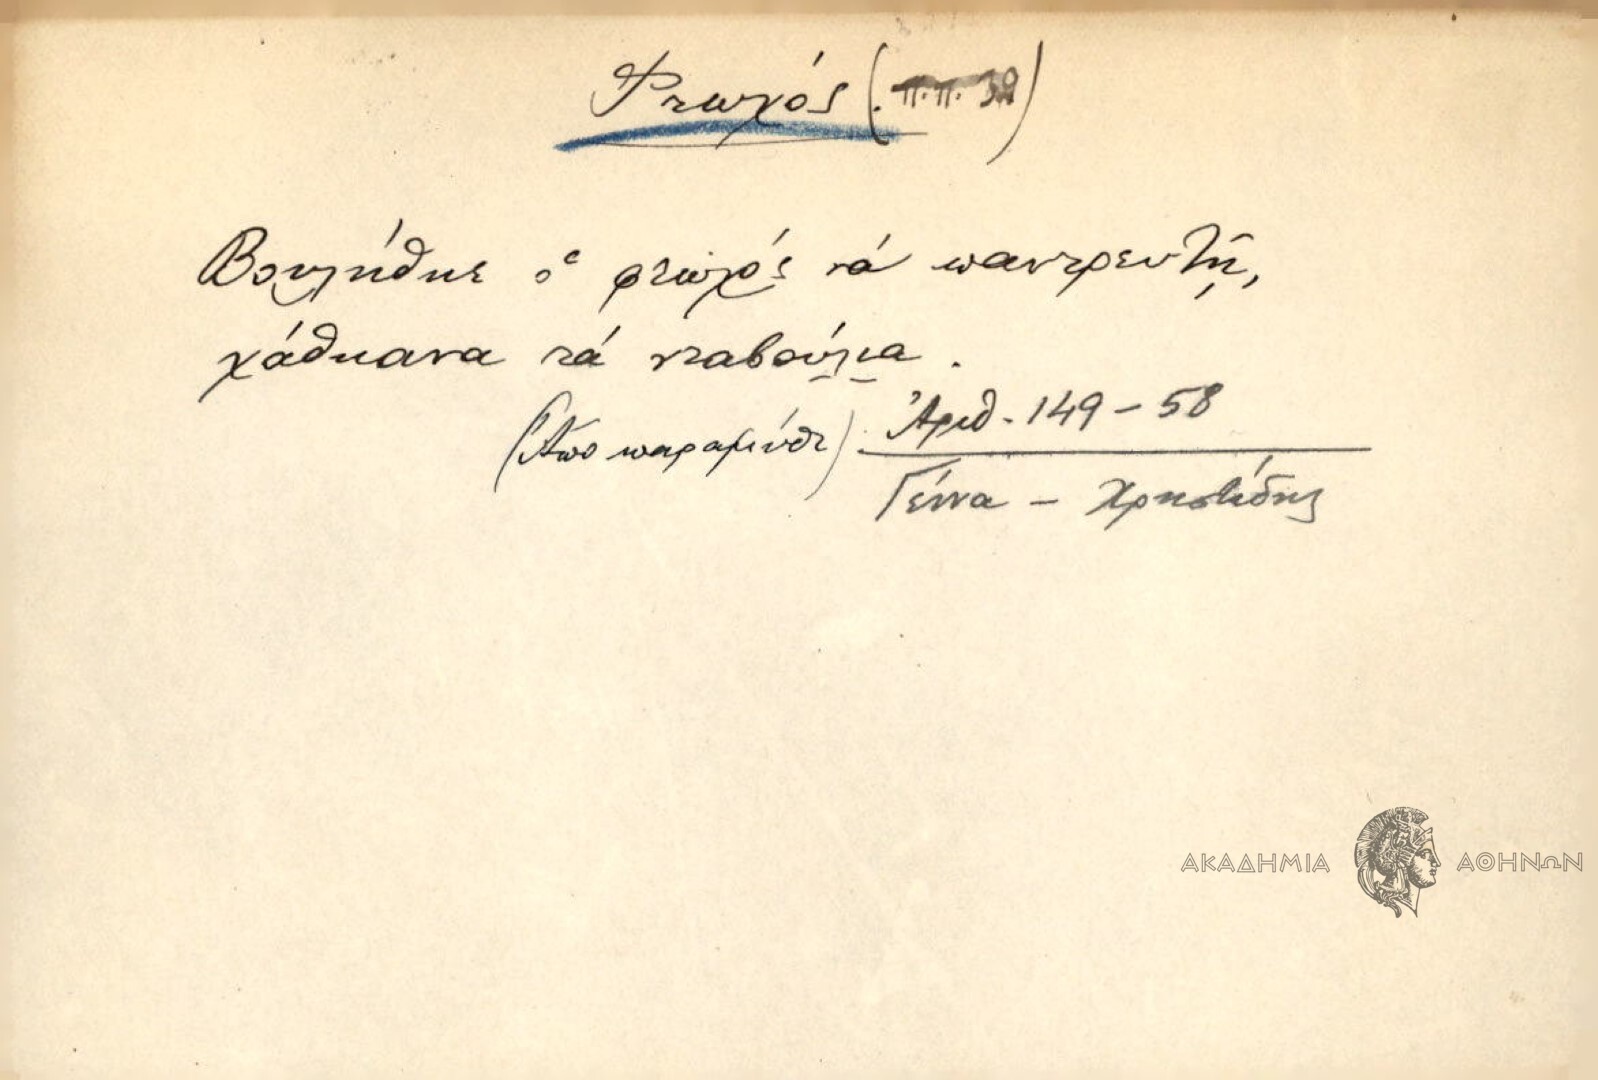 Φτωχός (π.π. 32)
Βουλήθηκε ὁ φτωχός νά παντρευτῇ,
χάθκανα τά νταβούλια.
(Ἀπό παραμύθι) Ἀριθ. 149 - 58
Γέννα - Χρηστίδης
ΑΚΑΔΗΜΙΑ ΑΘΗΝΩΝ